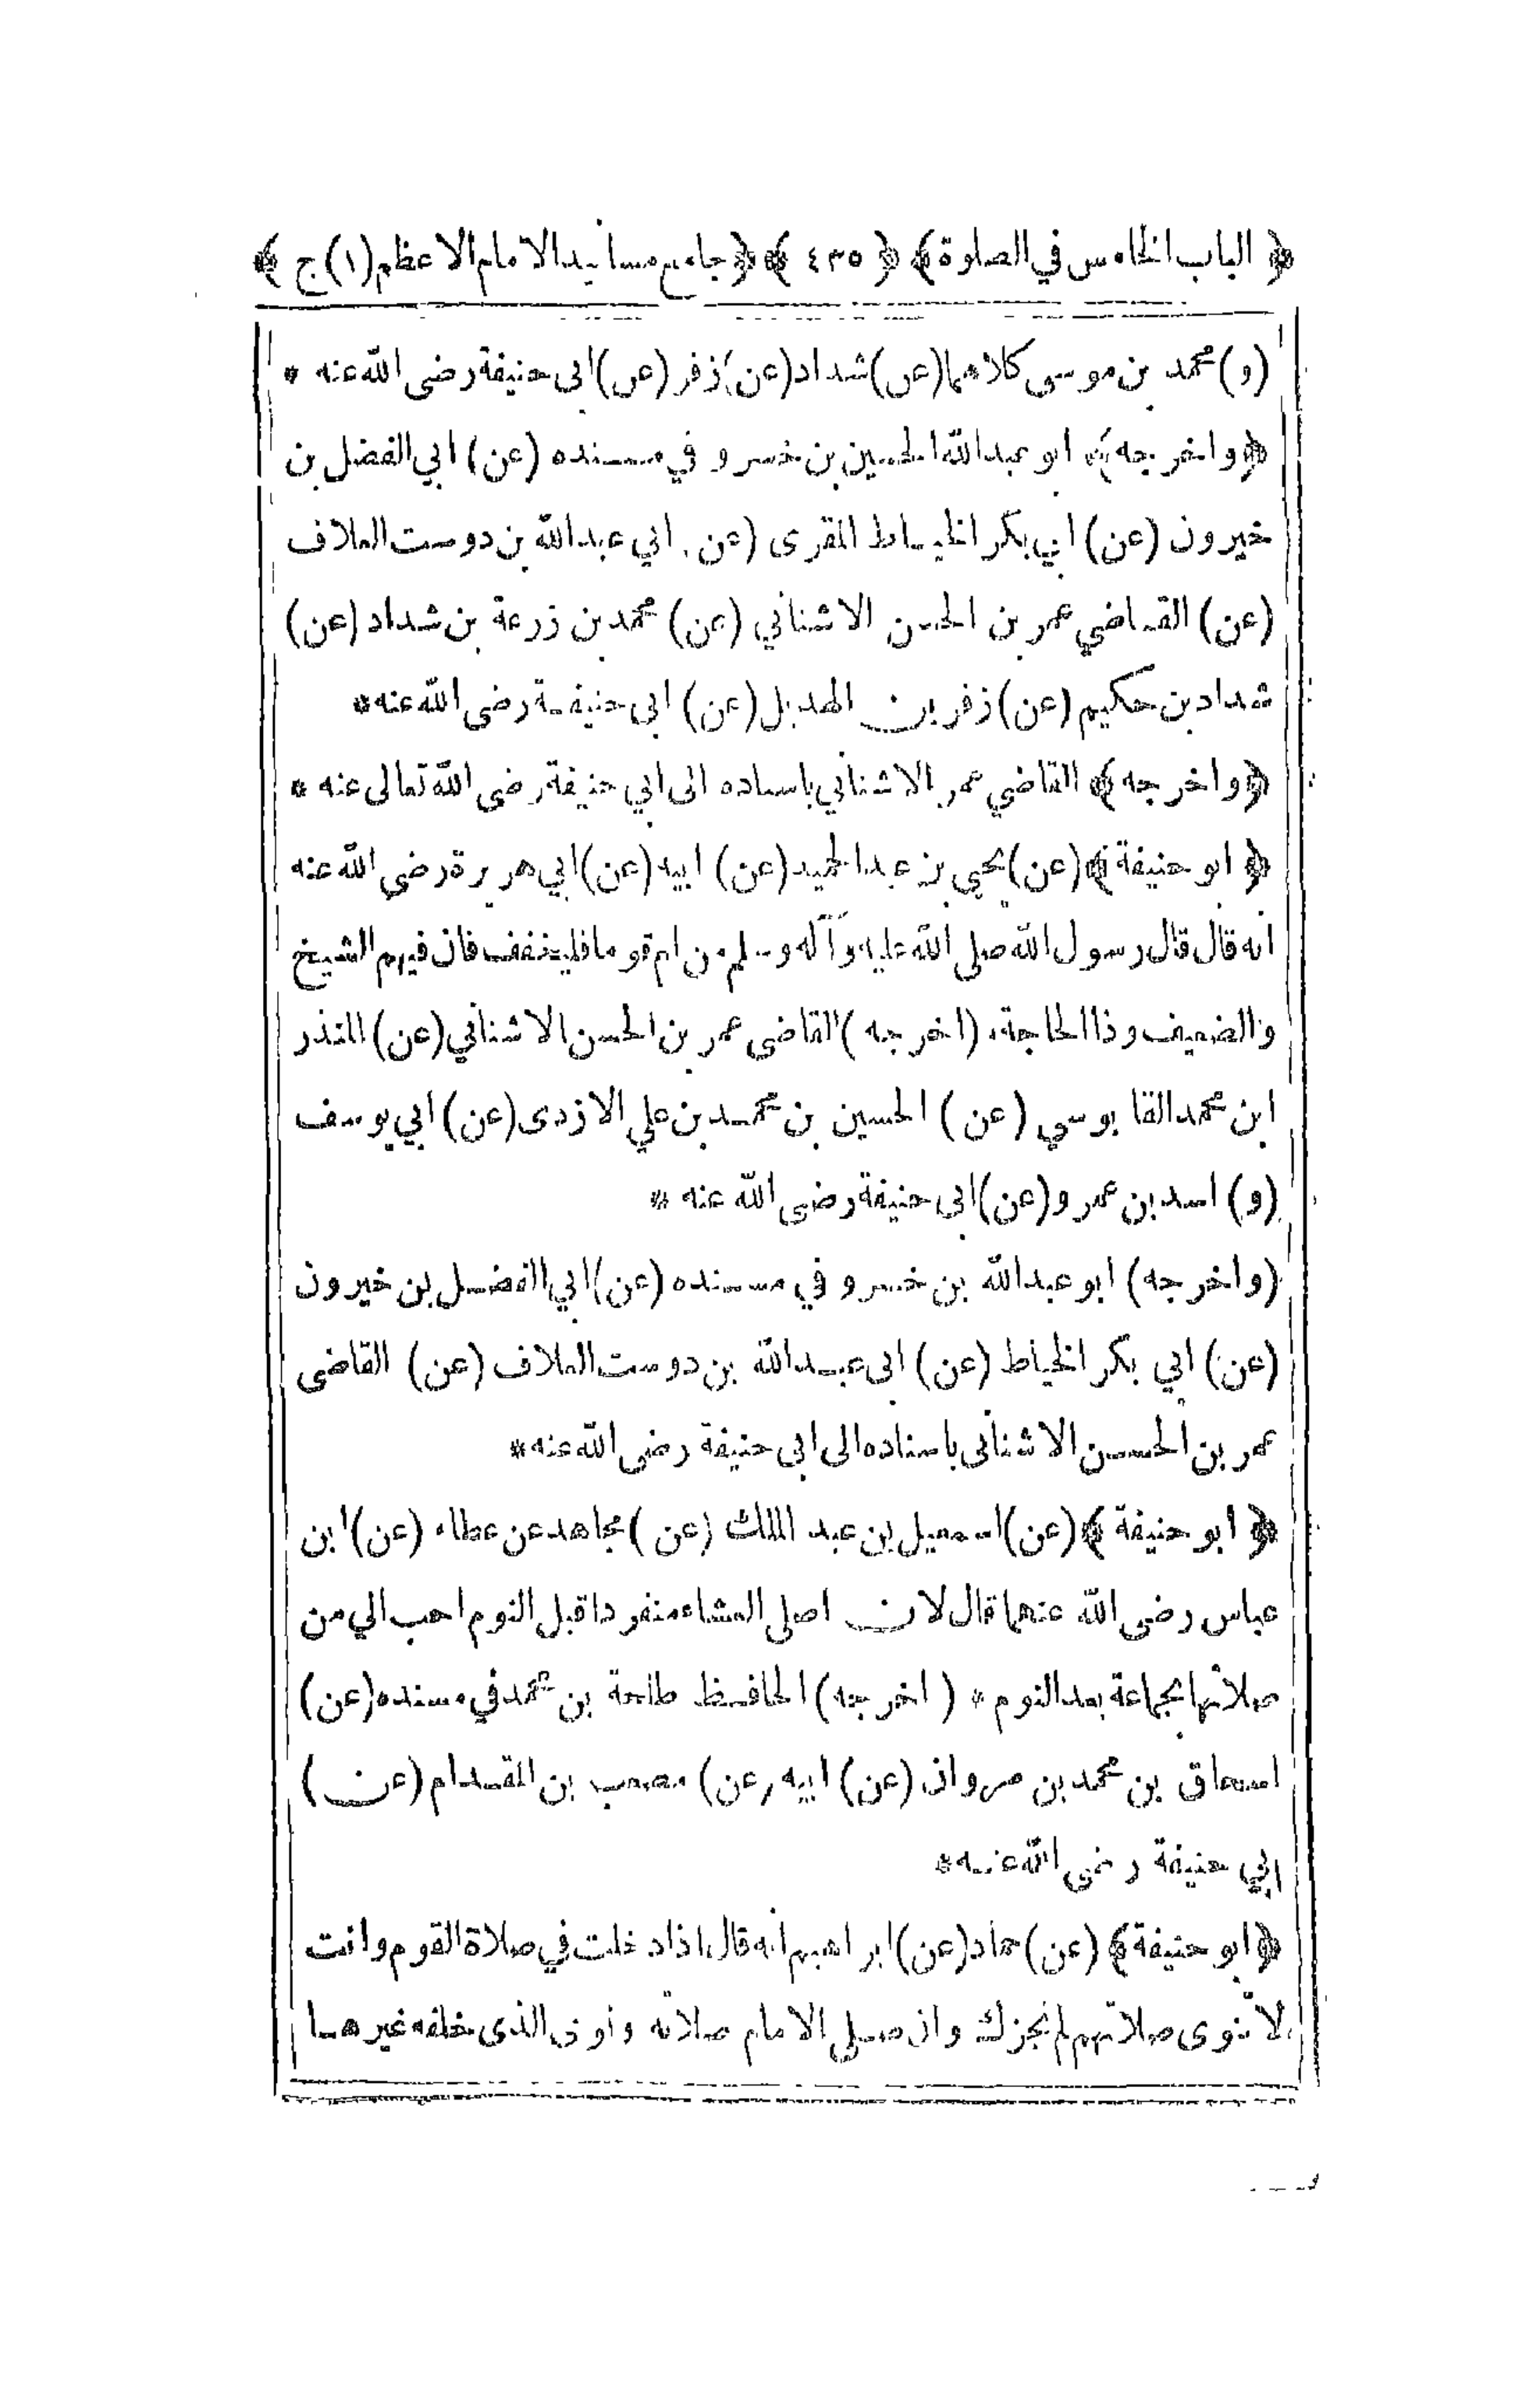 ﴿ الباب الخامس في الصلوة ﴾ ﴿ ٤٣٥ ﴾ ﴿ جامع مسانيد الامام الاعظم (١) ج ﴾
(و) محمد بن موسى كلاهما (عن) شداد (عن) زفر (عن) ابى حنيفة رضى الله عنه *
﴿ واخرجه ﴾ ابو عبدالله الحسين بن خسرو في مسنده (عن) ابي الفضل بن
خيرون (عن) ابي بكر الخياط المقرى (عن) ابي عبدالله بن دوست العلاف
(عن) القاضي عمر بن الحسن الاشناني (عن) محمد بن زرعة بن شداد (عن)
شداد بن حكيم (عن) زفر بن الهديل (عن) ابى حنيفة رضى الله عنه *
﴿ واخرجه ﴾ القاضي عمر الاشناني باسناده الى ابي حنيفة رضى الله تعالى عنه *
﴿ ابو حنيفة ﴾ (عن) يحيى بن عبدالحميد (عن) ابيه (عن) ابي هريرة رضى الله عنه
انه قال قال رسول الله صلى الله عليه وآله وسلم من ام قوما فليخفف فان فيهم الشيخ
والضعيف وذا الحاجة. (اخرجه) القاضى عمر بن الحسن الاشناني (عن) المنذر
ابن محمد القابوسي (عن) الحسين بن محمد بن علي الازدى (عن) ابي يوسف
(و) اسد بن عمرو (عن) ابى حنيفة رضى الله عنه *
(واخرجه) ابو عبدالله بن خسرو في مسنده (عن) ابي الفضل بن خيرون
(عن) ابي بكر الخياط (عن) ابى عبدالله بن دوست العلاف (عن) القاضى
عمر بن الحسن الاشنانى باسناده الى ابى حنيفة رضى الله عنه *
﴿ ابو حنيفة ﴾ (عن) اسمعيل بن عبد الملك (عن) مجاهد عن عطاء (عن) ابن
عباس رضى الله عنهما قال لان اصلى العشاء منفردا قبل النوم احب الي من
صلاتها بجماعة بعد النوم * (اخرجه) الحافظ طلحة بن محمد في مسنده (عن)
اسحاق بن محمد بن مروان (عن) ابيه (عن) مصعب بن المقدام (عن)
ابي حنيفة رضى الله عنه *
﴿ ابو حنيفة ﴾ (عن) حماد (عن) ابراهيم انه قال اذا دخلت في صلاة القوم وانت
لا تنوى صلاتهم لم تجزك وان صلى الامام صلاته ونوى الذى خلفه غيرها